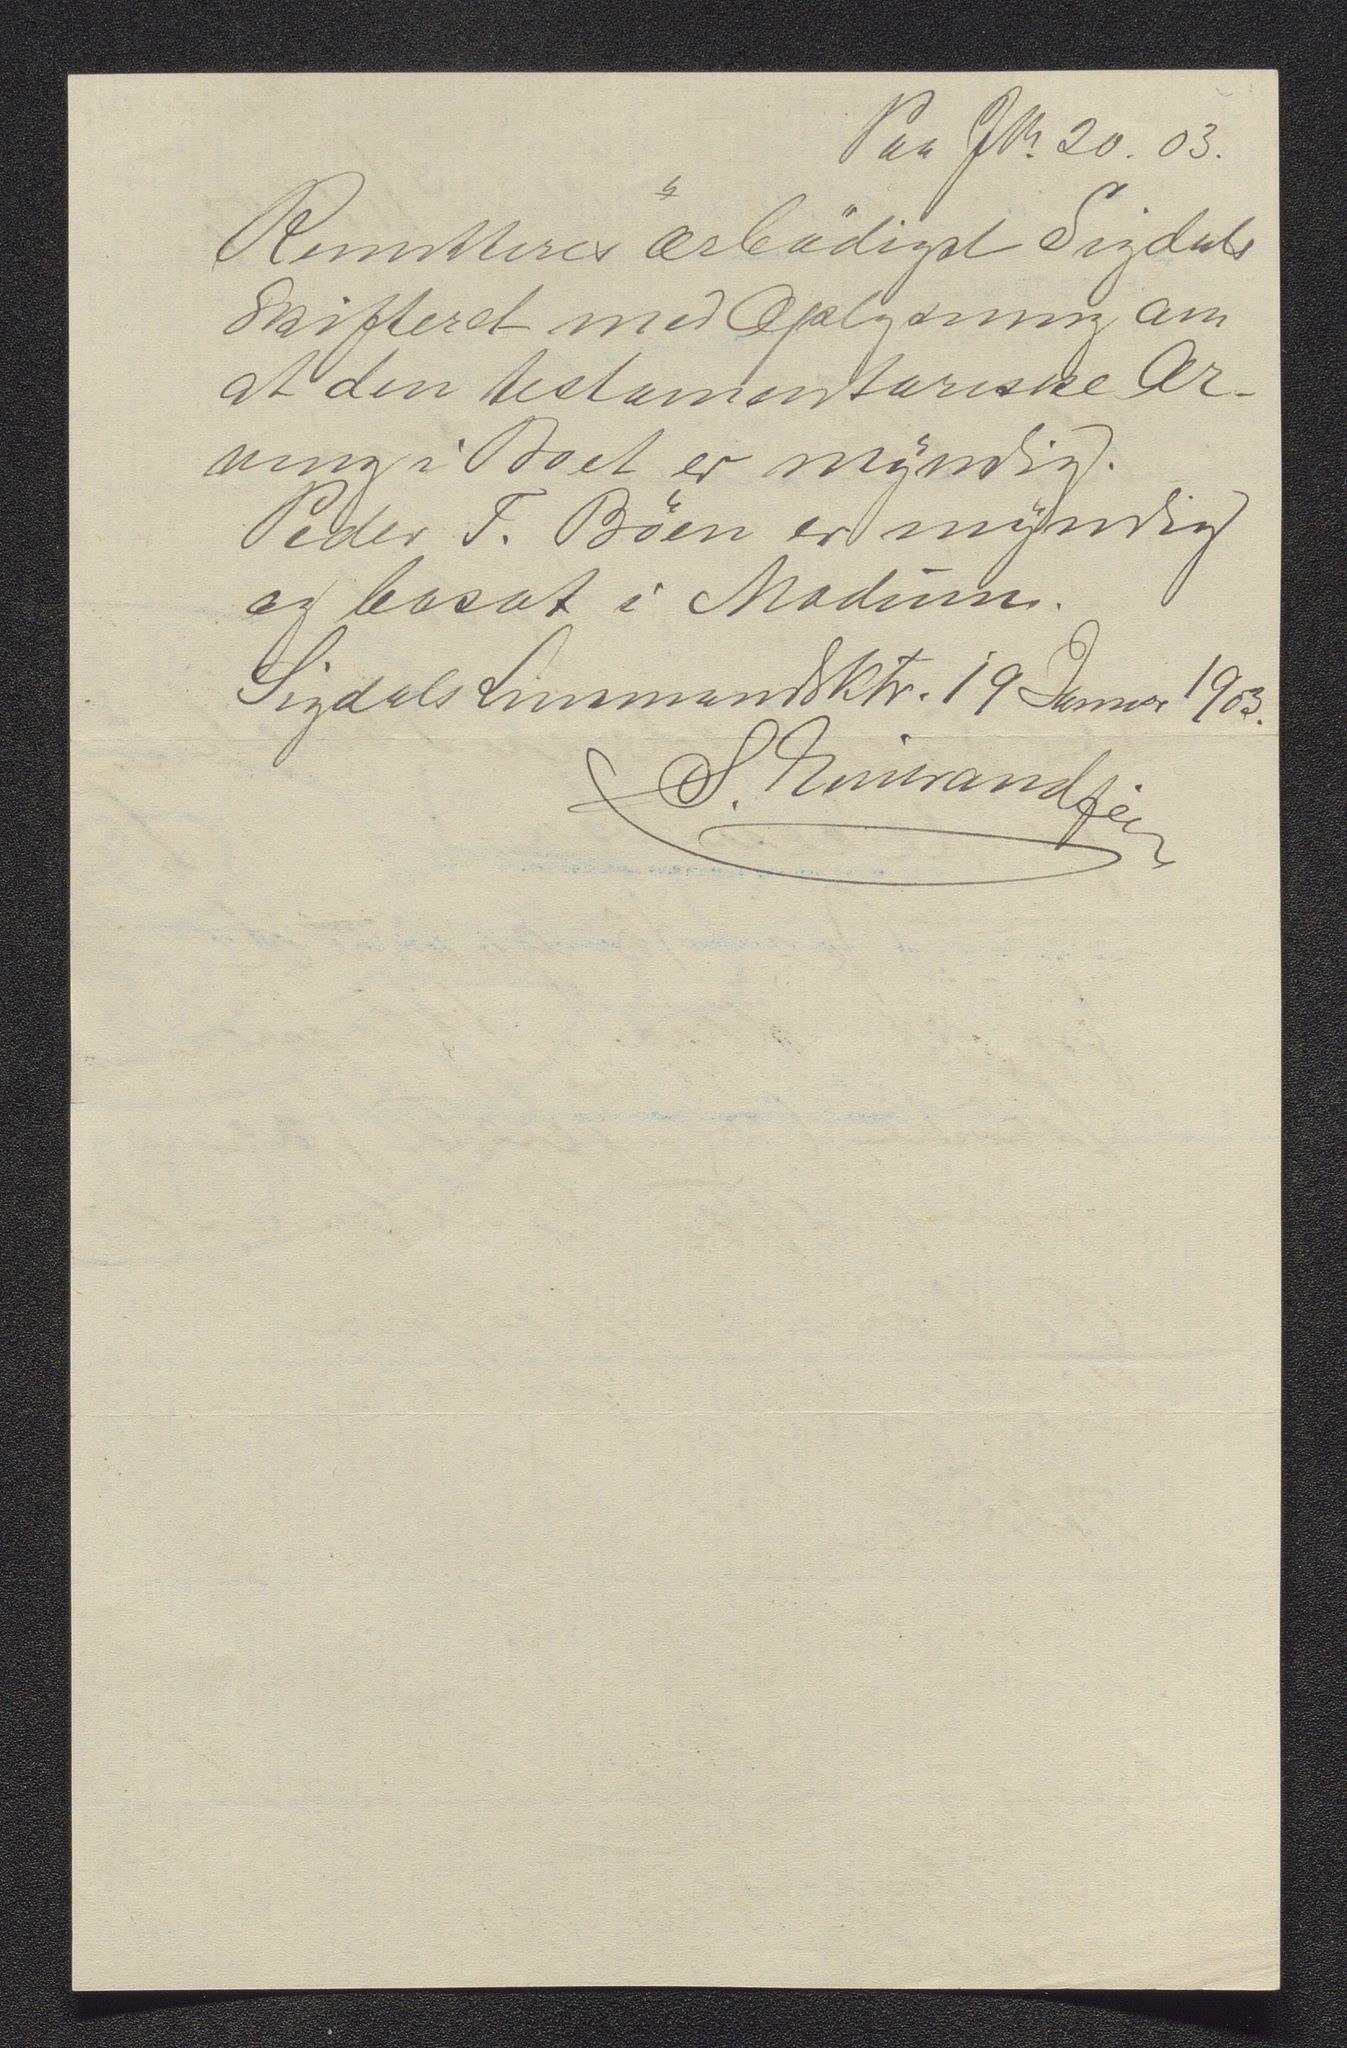 Paa JN. 20. 03.
Remitteres ærbödigst Sigdals
Skifteret med Oplysning om
at den testamentariske Ar-
ving i Boet er myndig.
Peder T. Böen er myndig
og bosat i Modum.
Sigdals Lensmandsktr. 19 Januar 1903.
S.